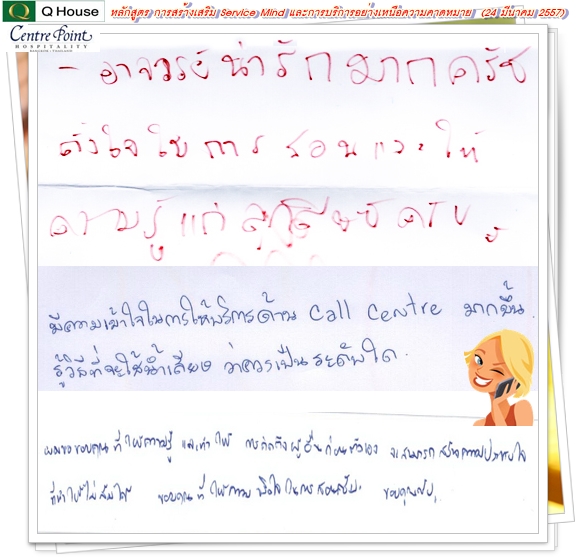 Q House
หลักสูตร การสร้างเสริม Service Mind และการบริการอย่างเหนือความคาดหมาย (24 มีนาคม 2557)
Centre Point
HOSPITALITY
- อาจารย์น่ารักมากครัช
ตั้งใจในการสอนและให้
ความรู้แก่ลูกศิษย์ครับ
มีความเข้าใจในการให้บริการด้าน Call Centre มากขึ้น.
รู้วิธีที่จะใช้น้ำเสียง ว่าควรเป็นระดับใด.
ผมขอขอบคุณที่ให้ความรู้ และทำให้ การคิดถึงผู้อื่นก่อนตัวเอง จะสามารถสร้างความประทับใจ
ที่ทำให้ไม่ลืมได้ ขอบคุณที่ให้ความ ในการสอนครับ. ขอบคุณครับ